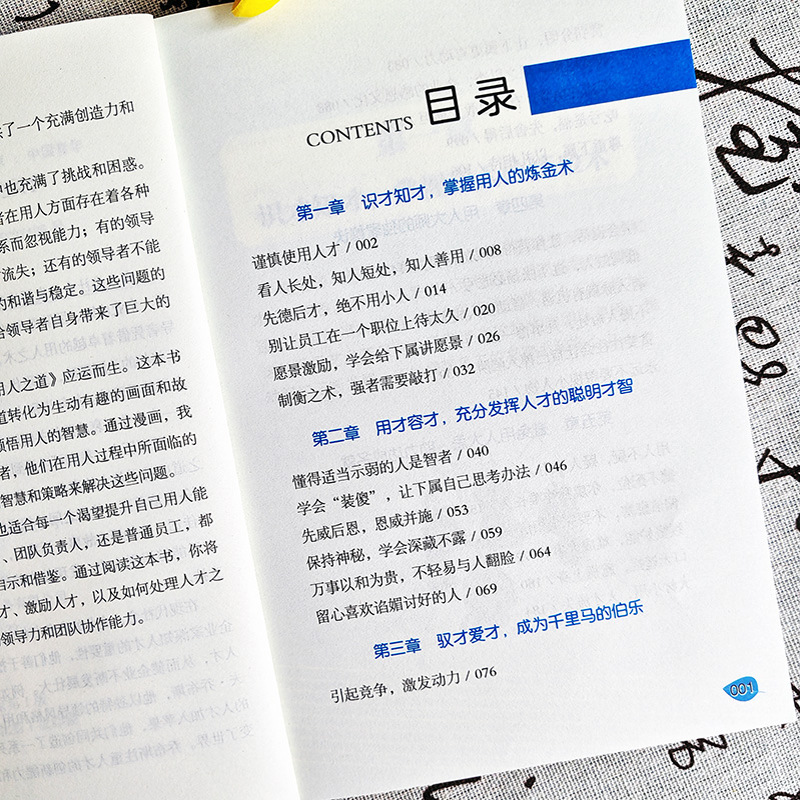 了一个充满创造力和
也充满了挑战和困惑。
在用人方面存在着各种
系而忽视能力；有的领导
流失；还有的领导者不能
的和谐与稳定。这些问题的
领导者自身带来了巨大的
用人之道》应运而生。这本书
道转化为生动有趣的画面和故
悟用人的智慧。通过漫画，我
者，他们在用人过程中所面临的
智慧和策略来解决这些问题。
也适合每一个渴望提升自己用人能
、团队负责人，还是普通员工，都
启示和借鉴。通过阅读这本书，你将
才、激励人才，以及如何处理人才之
领导力和团队协作能力。
CONTENTS 目录
第一章 识才知才，掌握用人的炼金术
谨慎使用人才 / 002
看人长处，知人短处，知人善用 / 008
先德后才，绝不用小人 / 014
别让员工在一个职位上待太久 / 020
愿景激励，学会给下属讲愿景 / 026
制衡之术，强者需要敲打 / 032
第二章 用才容才，充分发挥人才的聪明才智
懂得适当示弱的人是智者 / 040
学会“装傻”，让下属自己思考办法 / 046
先威后恩，恩威并施 / 053
保持神秘，学会深藏不露 / 059
万事以和为贵，不轻易与人翻脸 / 064
留心喜欢谄媚讨好的人 / 069
第三章 驭才爱才，成为千里马的伯乐
引起竞争，激发动力 / 076
001